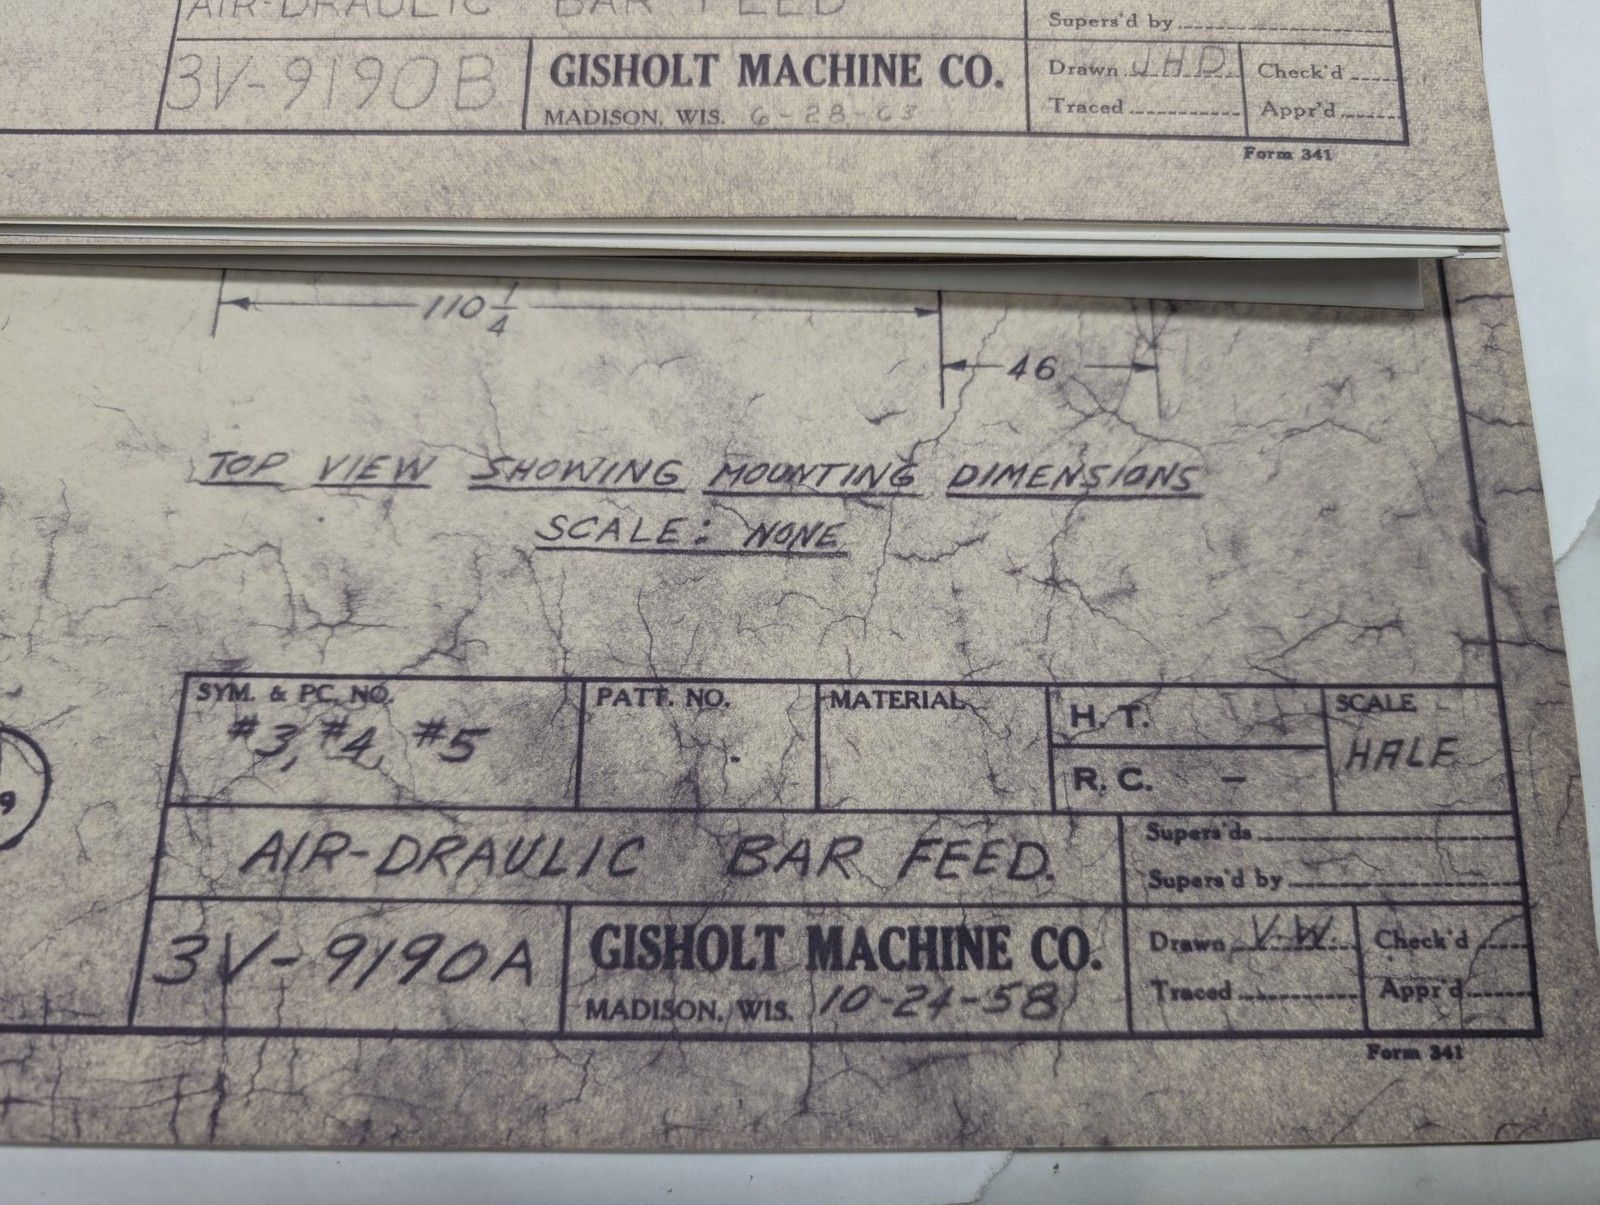 AIR-DRAULIC BAR FEED
Supers'd by
3V-9190B
GISHOLT MACHINE CO.
MADISON, WIS. 6-28-63
Drawn JHD
Check'd
Traced
Appr'd
Form 341
110 1/4
46
TOP VIEW SHOWING MOUNTING DIMENSIONS
SCALE: NONE
SYM. & PC. NO.
#3, #4, #5
PATT. NO.
MATERIAL
H. T.
R. C. -
SCALE
HALF
9
AIR-DRAULIC BAR FEED.
Supers'ds
Supers'd by
3V-9190A
GISHOLT MACHINE CO.
MADISON, WIS. 10-24-58
Drawn V-W.
Check'd
Traced
Appr'd
Form 341